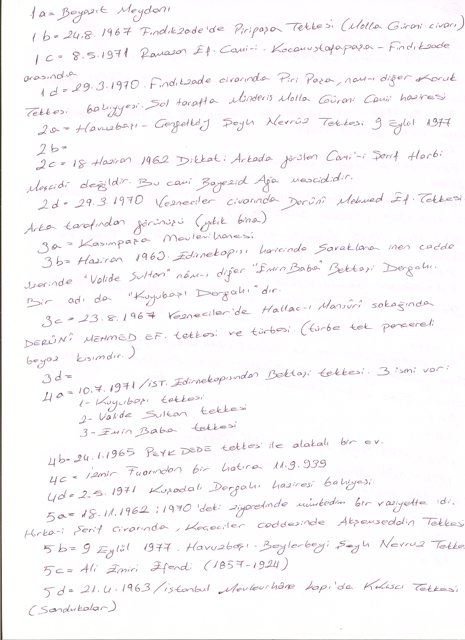 1a = Beyazıt Meydanı
1b = 24.8.1967 Fındıkzade'de Piripaşa Tekkesi (Molla Gürani civarı)
1c = 8.5.1971 Ramazan Ef. Camii. Kocamustafapaşa - Fındıkzade
arasında
1d = 29.3.1970 Fındıkzade civarında Piri Paşa, nam-ı diğer Koruk
Tekkesi bakiyyesi. Sol tarafta Münderis Molla Gürani Cami haziresi
2a = Havuzbaşı - Çengelköy Şeyh Nevruz Tekkesi 9 Eylül 1977
2b =
2c = 18 Haziran 1962 Dikkat: Arkada görülen Cami-i Şerif Harbi
Mescidi değildir. Bu cami Bayezid Ağa mescididir.
2d = 29.3.1970 Vezneciler civarında Derûni Mehmed Ef. Tekkesi
Arka tarafından görünüşü (yıkık bina)
3a = Kasımpaşa Mevlevihanesi
3b = Haziran 1963. Edirnekapısı haricinde Savaklara inen cadde
üzerinde "Valide Sultan" nâm-ı diğer "Emin Baba" Bektaşi Dergahı.
Bir adı da "Kuyubaşı Dergahı" dır.
3c = 23.8.1967 Vezneciler'de Hallac-ı Mansûri sokağında
DERÛNİ MEHMED EF. tekkesi ve türbesi (türbe tek pencereli
beyaz kısımdır.)
3d =
4a = 10.7.1971/İST. Edirnekapısından Bektaşi tekkesi. 3 ismi var:
1- Kuyubaşı tekkesi
2- Valide Sultan tekkesi
3- Emin Baba tekkesi
4b = 24.1.1965 PEYK DEDE tekkesi ile alakalı bir ev.
4c = İzmir Fuarından bir hatıra 11.9.939
4d = 2.5.1971 Kuşadalı Dergahı haziresi bakiyesi
5a = 18.11.1962; 1970'deki ziyaretinde münhedim bir vaziyette idi.
Hırka-i Şerif civarında, Keçeciler caddesinde Akşemseddin Tekkesi
5b = 9 Eylül 1977. Havuzbaşı. Beylerbeyi Şeyh Nevruz Tekkesi
5c = Ali Emiri Efendi (1857-1924)
5d = 21.4.1963/İstanbul Mevlevihâne kapı'da Tekkesi
(Sandukalar)